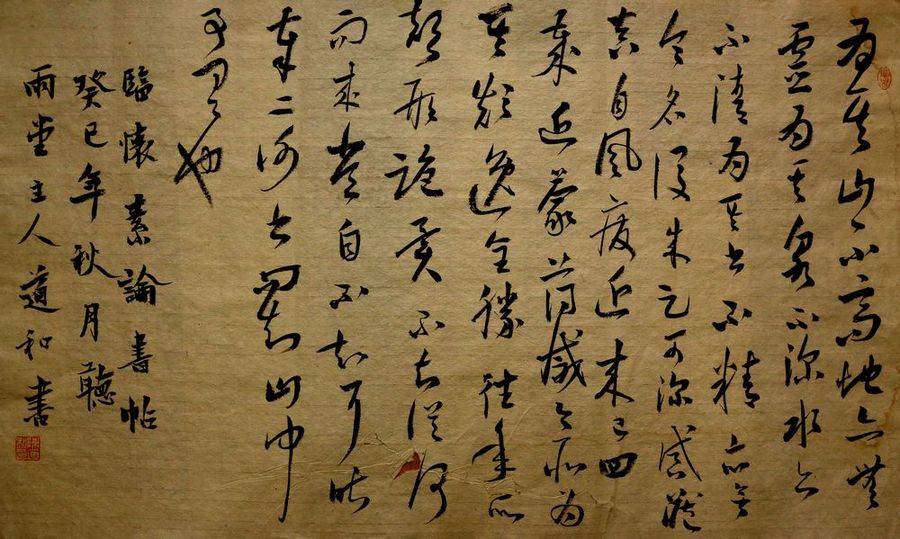 為其山不高地亦無
靈為其泉不深水亦
不清為其書不精亦無
令名後來足可深戒藏
真自風廢近來已四
歲近蒙薄減今所為
其顛逸全勝往年所
顛形詭異不知從何
而來常自不知耳昨
奉二謝書問知山中
事有也
臨懷素論書帖
癸巳年秋月聽
雨堂主人道和書